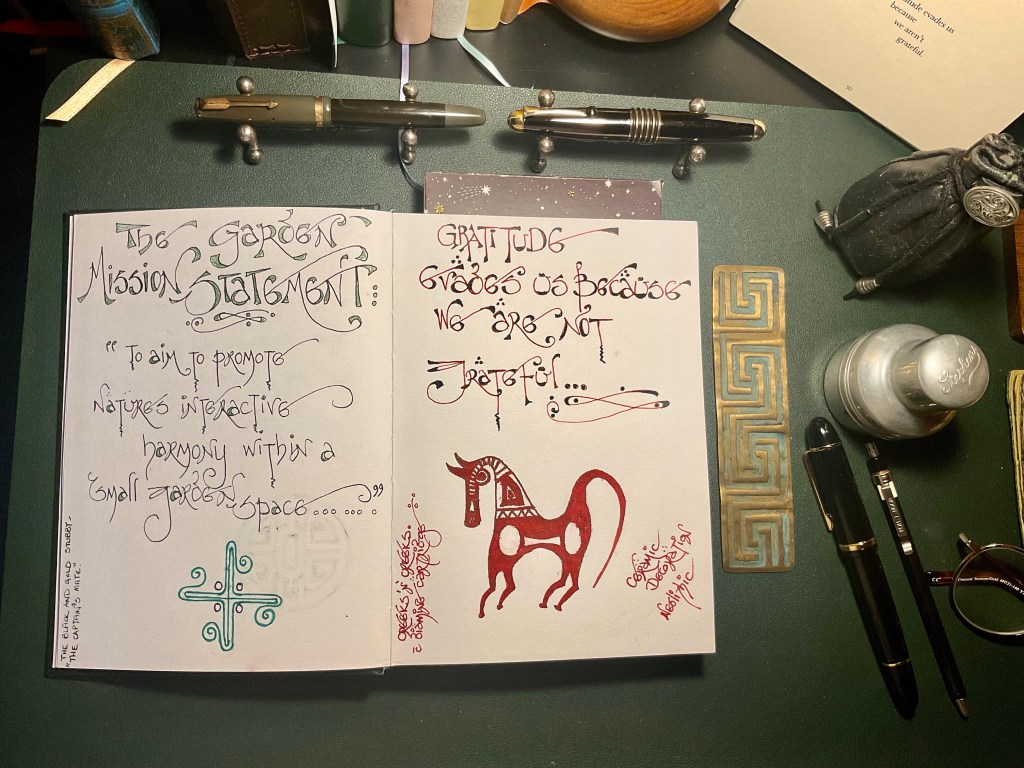 ...titude evades us
because
we aren't
grateful.
The Garden
Mission Statement:
"To aim to promote
Natures interactive
harmony within a
small garden space......"
"THE BLACK AND GOLD STUBBY-
"THE CAPTAIN'S MATE".
GRATITUDE
evades us Because
We are NOT
Grateful...
Ceramic
Design
Neolithic